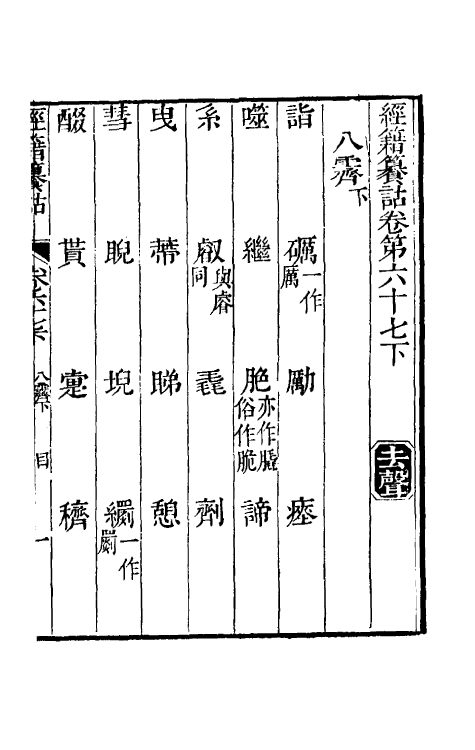 經籍籑詁卷第六十七下 去聲
八霽下
詣 礪一作厲 勵 瘞
噬 繼 脃亦作膬俗作脆 諦
系 叡與睿同 毳 劑
曳 蔕 睇 憩
彗 睨 堄 罽一作𦇧
醊 貰 疐 穧
經籍籑詁 卷六十七下 八霽下 目 一